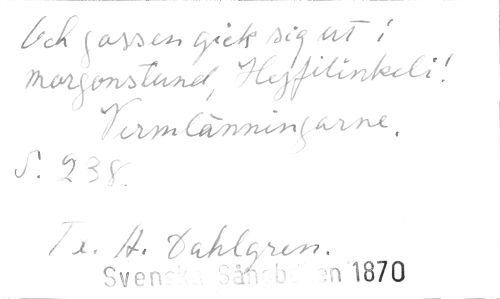 Och gossen gick sig ut i
morgonstund, Hejfilinkeli!
Vermlänningarne.
S. 238.
Te. A. Dahlgren.
Svenska Sångboken 1870